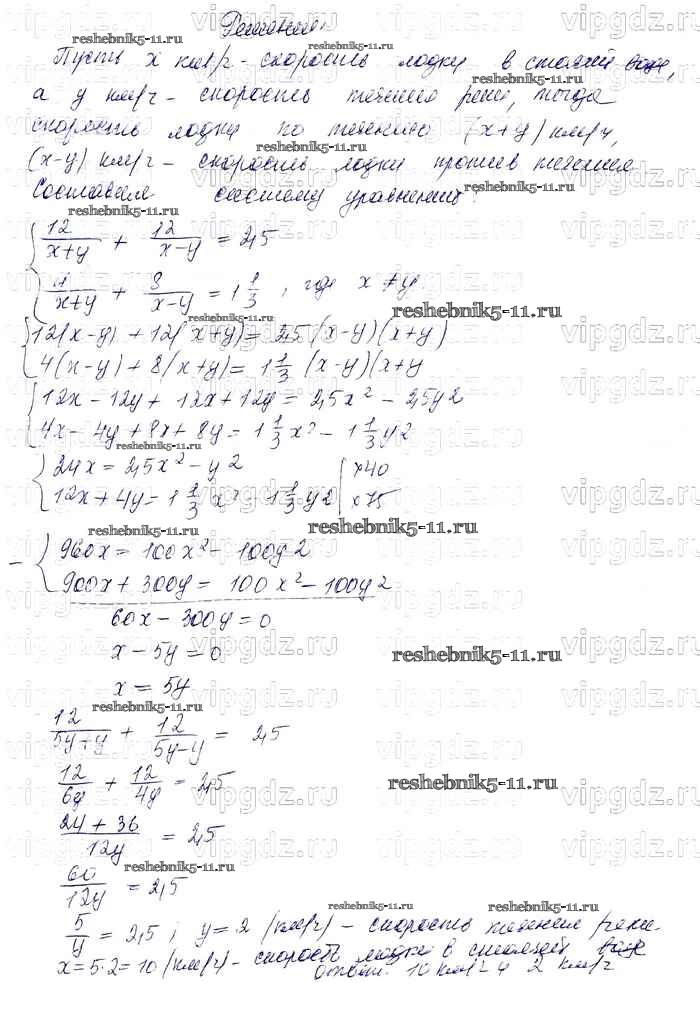 Решение.
Пусть x км/ч - скорость лодки в стоячей воде,
а y км/ч - скорость течения реки, тогда
скорость лодки по течению (x+y) км/ч,
(x-y) км/ч - скорость лодки против течения
Составим систему уравнений:
12/(x+y) + 12/(x-y) = 2,5
4/(x+y) + 8/(x-y) = 1 1/3, где x ≠ y.
12(x-y) + 12(x+y) = 2,5(x-y)(x+y)
4(x-y) + 8(x+y) = 1 1/3 (x-y)(x+y
12x - 12y + 12x + 12y = 2,5x² - 2,5y2
4x - 4y + 8x + 8y = 1 1/3 x² - 1 1/3 y2
24x = 2,5x² - y2 | ×40
12x + 4y = 1 1/3 x² - 1 1/3 y2 | ×75
- 960x = 100x² - 100y2
900x + 300y = 100x² - 100y2
60x - 300y = 0
x - 5y = 0
x = 5y
12/(5y+y) + 12/(5y-y) = 2,5
12/6y + 12/4y = 2,5
(24 + 36)/12y = 2,5
60/12y = 2,5
5/y = 2,5; y = 2 (км/ч) - скорость течения реки.
x = 5·2 = 10 (км/ч) - скорость лодки в стоячей воде
Ответ: 10 км/ч и 2 км/ч
reshebnik5-11.ru
vipgdz.ru